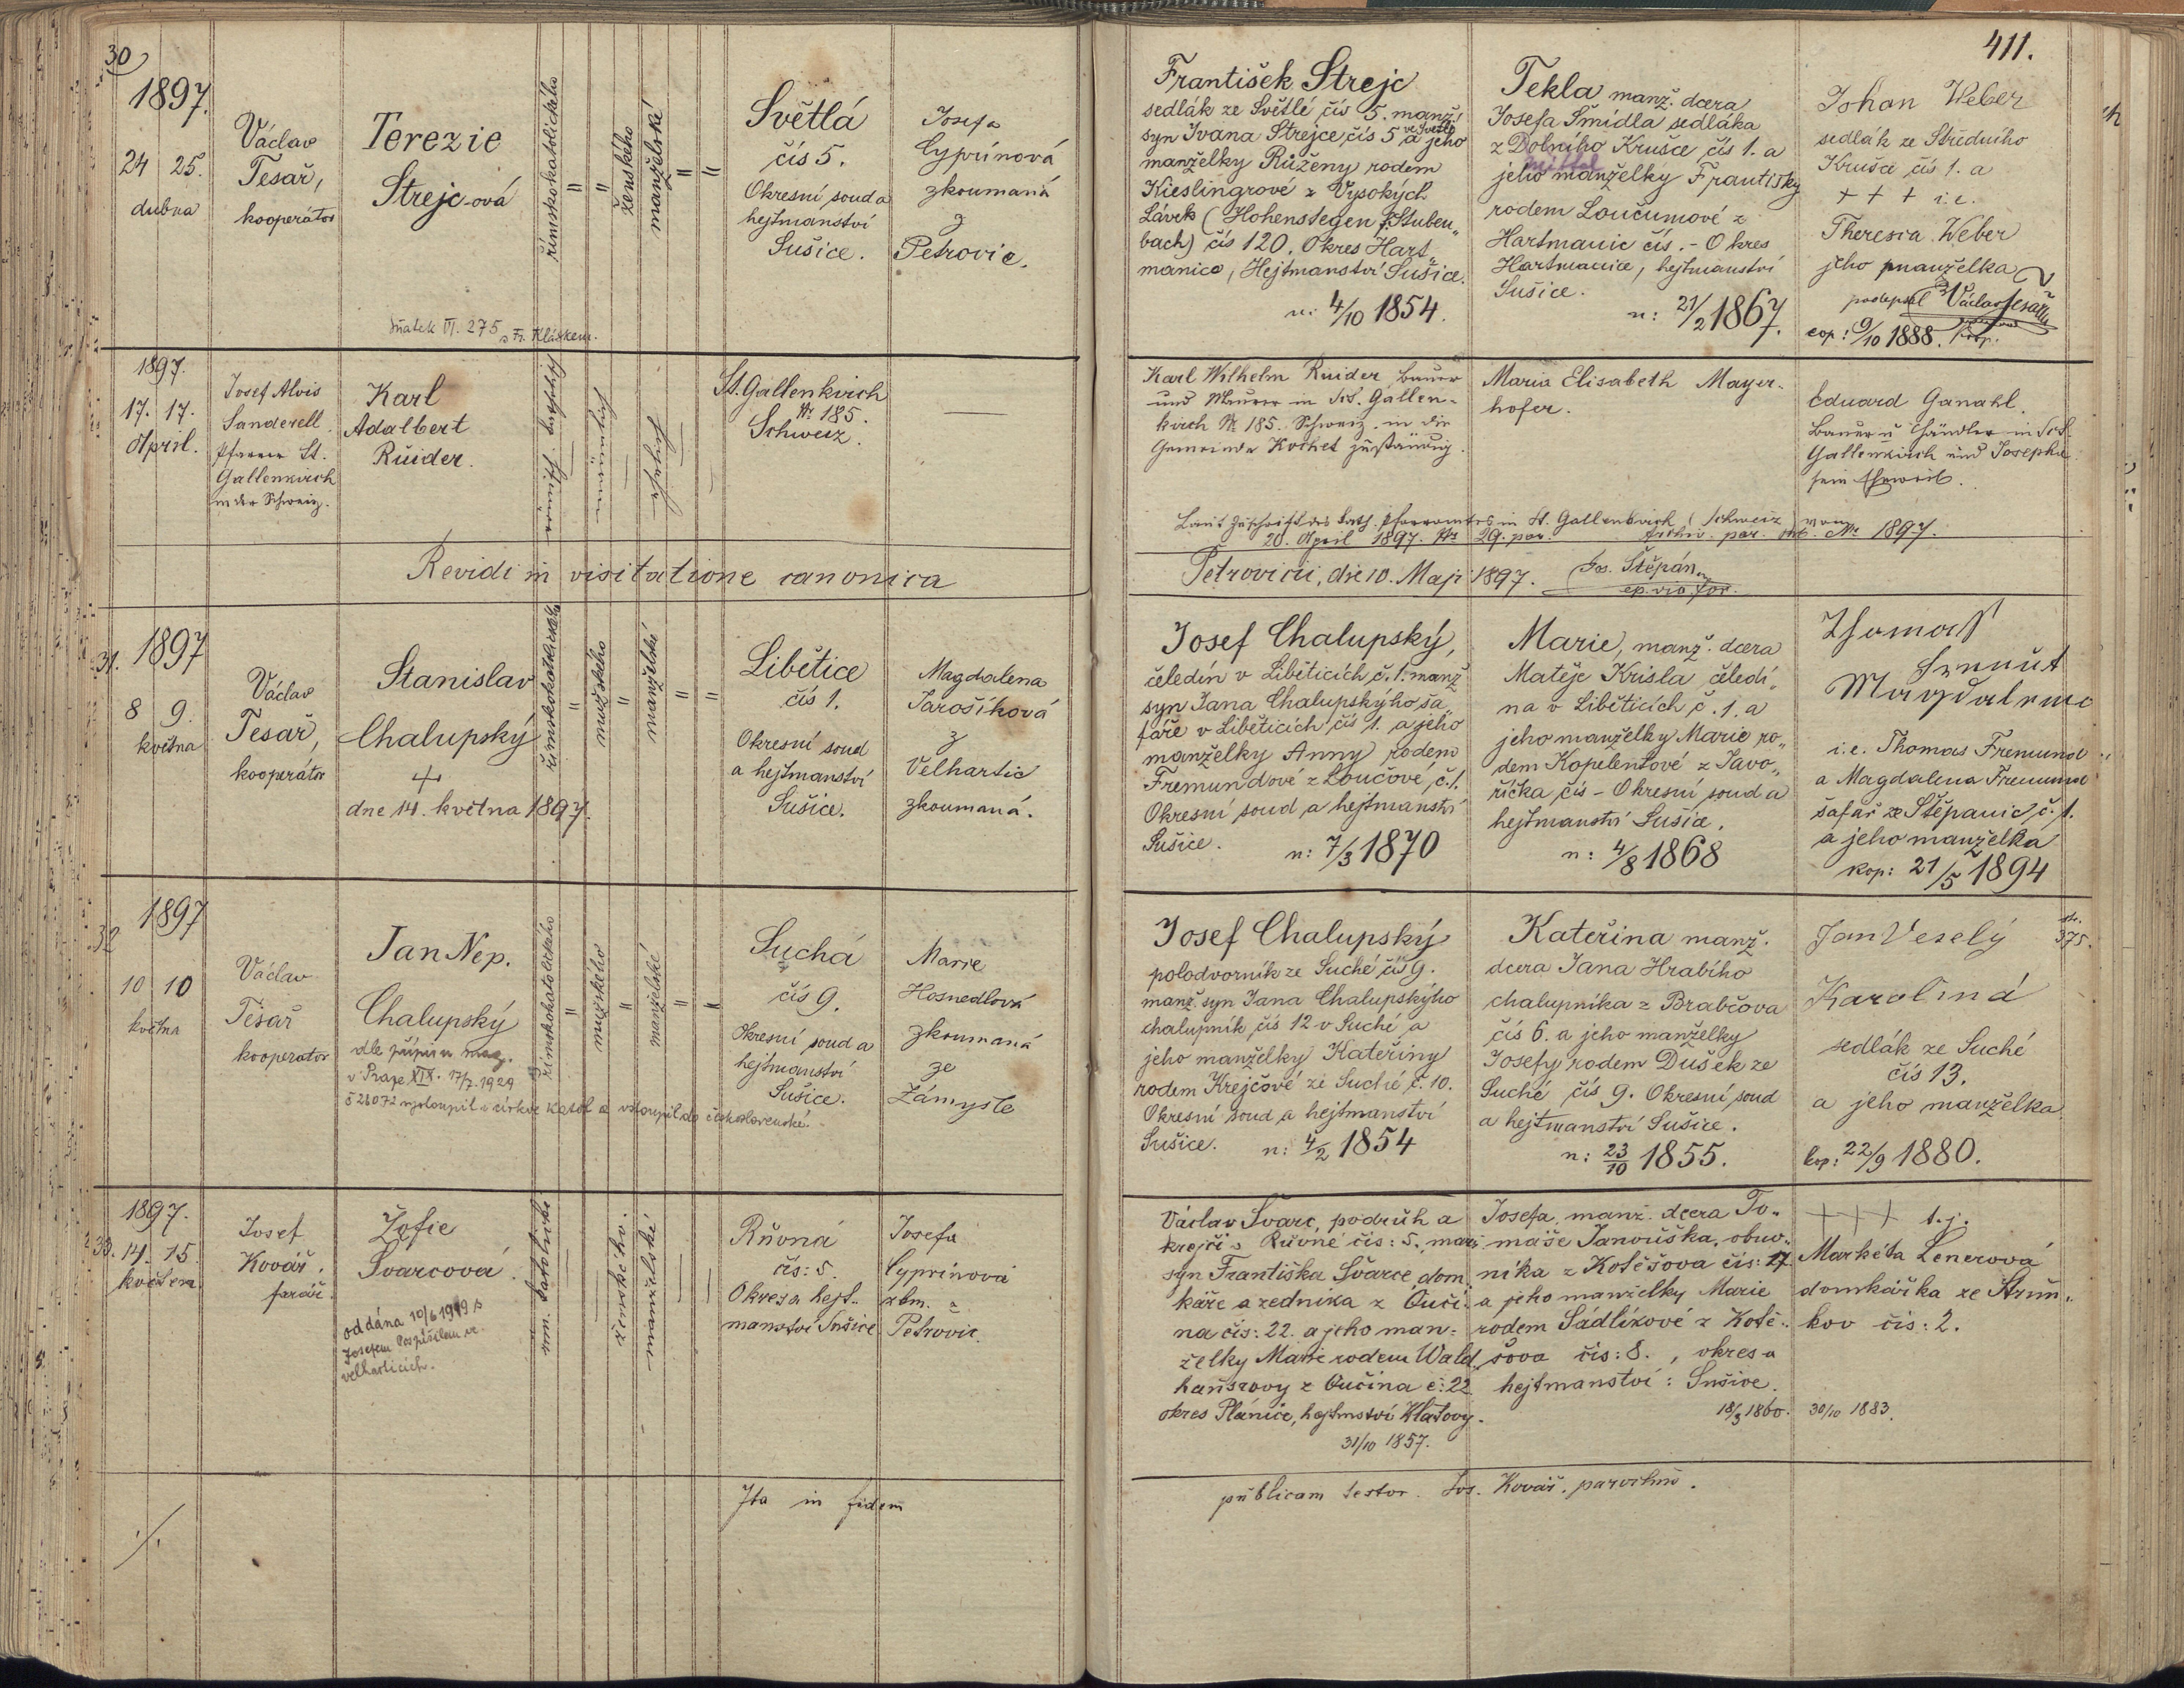 30
411.
1897.
24 25.
dubna
Václav
Tesař,
kooperátor
Terezie
Strejc-ová
Sňatek VI. 275 s Fr. Kláskem.
římskokatolického
"
"
ženského
manželské
"
"
Světlá
čís 5.
Okresní soud a
hejtmanství
Sušice.
Josefa
Cyprínová
zkoumaná
z
Petrovic.
František Strejc
sedlák ze Světlé čís 5. manž.
syn Ivana Strejce, čís 5 ve Světlé a jeho
manželky Růženy rodem
Kieslingrové z Vysokých
Lávek (Hohenstegen Stuben„
bach) čís 120. Okres Hart„
manice, Hejtmanství Sušice.
n: 4/10 1854.
Tekla manž. dcera
Josefa Šmídla sedláka
z Dolního Krušce čís 1. a
jeho manželky Františky
rodem Loučumové z
Hartmanic čís. - Okres
Hartmanice, hejtmanství
Sušice.
n: 21/2 1867.
Johan Weber
sedlák ze Středního
Krušce čís 1. a
+ + + i.e.
Theresia Weber
jeho manželka
podepsal Václav Tesař
cop: 9/10 1888.
1897.
17. 17.
April.
Josef Alois
Sanderell
Pfarrer St.
Gallenkirch
in der Schweiz.
Karl
Adalbert
Rüider.
römisch katholisch
männlich
ehelich
St. Gallenkirch
Nr. 185.
Schweiz.
Karl Wilhelm Rüider, Bauer
und Maurer in Sct. Gallen-
kirch Nr. 185. Schweiz. in die
Gemeinde Kochet zuständig.
Maria Elisabeth Mayer-
hofer.
Eduard Ganahl.
Bauer u Händler in Sct.
Gallenkirch und Josepha
sein Eheweib.
Laut Zuschrift des kath. Pfarramtes in St. Gallenkirch (Schweiz) vom
20. April 1897. Nr 29. par. Archiv. par. Nr. 1897.
Revidi in visitatione canonica
Petrovicii, die 10. Maji 1897. Jos. Štěpán
ep. vic. for.
31.
1897
8 9.
května
Václav
Tesař,
kooperátor
Stanislav
Chalupský
+
dne 14. května 1897.
římskokatolického
"
mužského
"
manželské
"
"
Libětice
čís 1.
Okresní soud
a hejtmanství
Sušice.
Magdalena
Jarošíková
z
Velhartic
zkoumaná.
Josef Chalupský,
čeledín v Liběticích č. 1. manž
syn Jana Chalupskýho ša„
fáře v Liběticích čís 1. a jeho
manželky Anny rodem
Fremundové z Loučové, č. 1.
Okresní soud a hejtmanství
Sušice. n: 7/3 1870
Marie, manž. dcera
Matěje Krisla čeledí„
na v Liběticích č. 1. a
jeho manželky Marie ro„
dem Kopelentové z Javo„
říčka čís - Okresní soud a
hejtmanství Sušice.
n: 4/8 1868
Thomas
Magdalena
i.e. Thomas Fremund
a Magdalena Fremund
šafář ze Štěpanic č. 1.
a jeho manželka
kop: 21/5 1894
32
1897
10 10
května
Václav
Tesař
kooperátor
Jan Nep.
Chalupský
dle přípisu mag.
v Praze XIX. 17/7. 1924
č 28072 vystoupil z církve katol a vstoupil do československé.
římskokatolického
"
mužského
"
manželské
"
"
Suchá
čís 9.
Okresní soud a
hejtmanství
Sušice.
Marie
Hosnedlová
zkoumaná
ze
Zámyšle
Josef Chalupský
polodvorník ze Suché čís 9.
manž. syn Jana Chalupskýho
chalupník čís 12 v Suché a
jeho manželky Kateřiny
rodem Krejčové ze Suché č. 10.
Okresní soud a hejtmanství
Sušice. n: 4/2 1854
Kateřina manž.
dcera Jana Hrabího
chalupníka z Brabčova
čís 6. a jeho manželky
Josefy rodem Dušek ze
Suché čís 9. Okresní soud
a hejtmanství Sušice.
n: 23/10 1855.
Jan Veselý
str. 375.
Karolina
sedlák ze Suché
čís 13.
a jeho manželka
kop: 22/9 1880.
33.
1897.
14. 15.
květen
Josef
Kovář,
farář.
Žofie
Švarcová.
oddána 10/6 1919 s
Josefem Pospíšilem ve
Velharticích.
řím. katolické
ženského.
manželské
Rňovná
čís: 5.
Okres a hejt-
manství Sušice
Josefa
Cyprínová
zkm. z
Petrovic.
Václav Švarc, podruh a
krejčí z Rňovné čís: 5. manž.
syn Františka Švarce, dom„
káře a zedníka z Oučí-
na čís: 22. a jeho man-
želky Marie rodem Wald„
hauserovy z Oučína č: 22
okres Plánice, hejtmství Klatovy.
31/10 1857.
Josefa, manž. dcera To„
máše Janouška, obuv„
níka z Kotěšova čís: 17
a jeho manželky Marie
rodem Sádlíkové z Kotě-
šova čís: 8., okres a
hejtmanství: Sušice.
18/3 1860.
+++ t.j.
Markéta Lenerová
domkářka ze Strun„
kov čís: 2.
30/10 1883.
Ita in fidem
publicam testor. Jos. Kovář, parochus.
./.